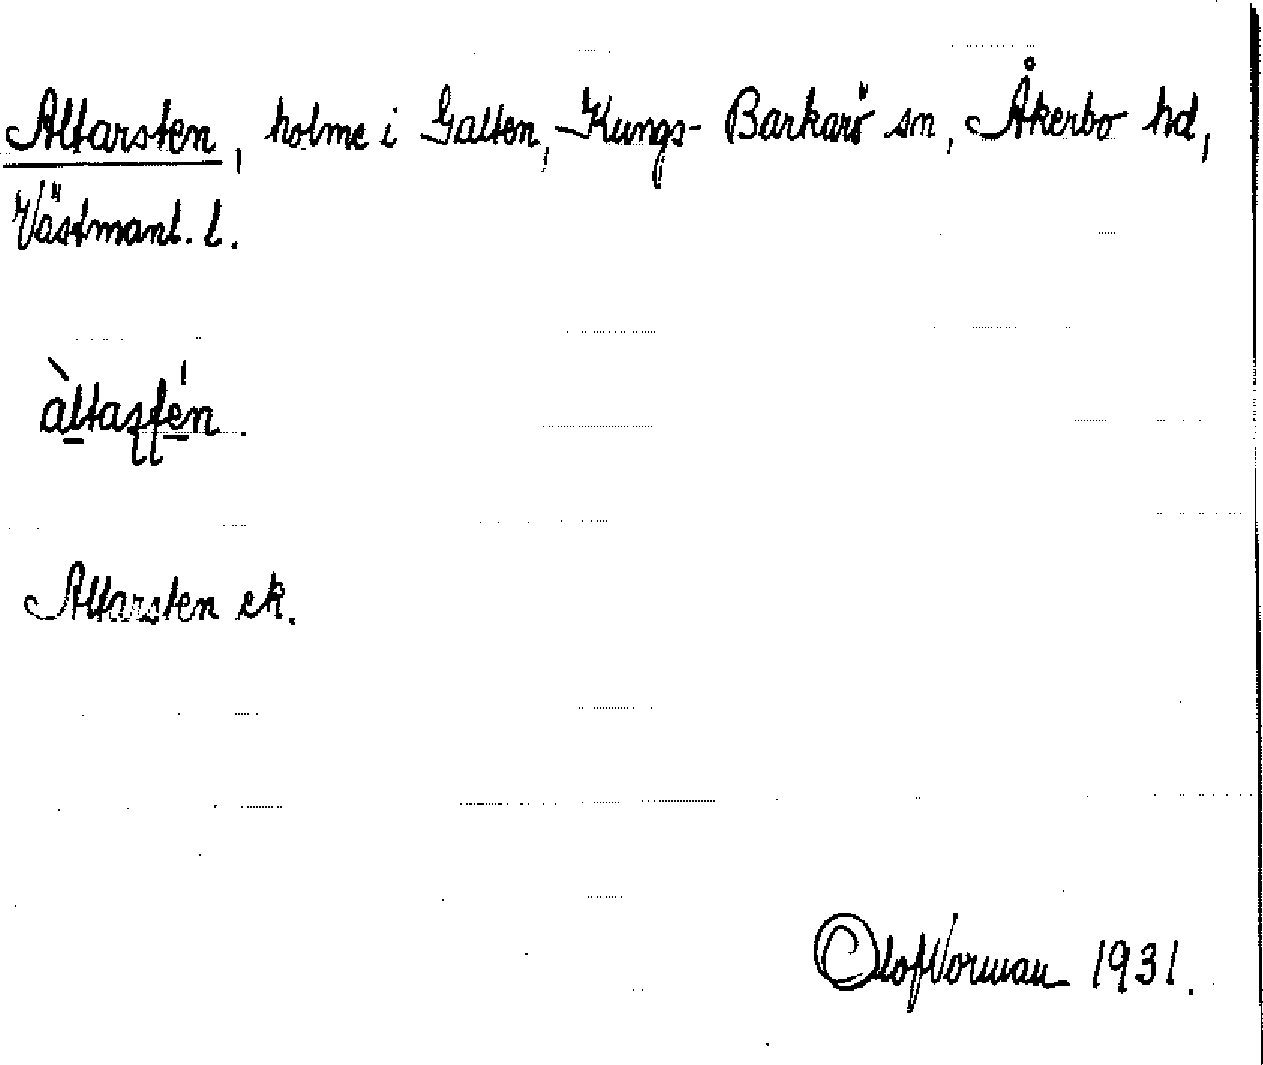 Altarsten, holme i Galten, Kungs-Barkarö sn, Åkerbo hd,
Västmanl. l.
àltaʂʈén.
Altarsten ek.
Olof Norman 1931.